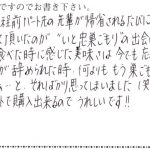 ですのでお書き下さい。
程前パート先の先輩が帰省されるたびに
頂いたのが"いと忠巣ごもり"の出会
食べた時に感じた美味さは今でも忘
が辞められた時、何よりも もう巣ごも
…と、そればかり思ってしまいました(笑
で購入出来るので うれしいです!!